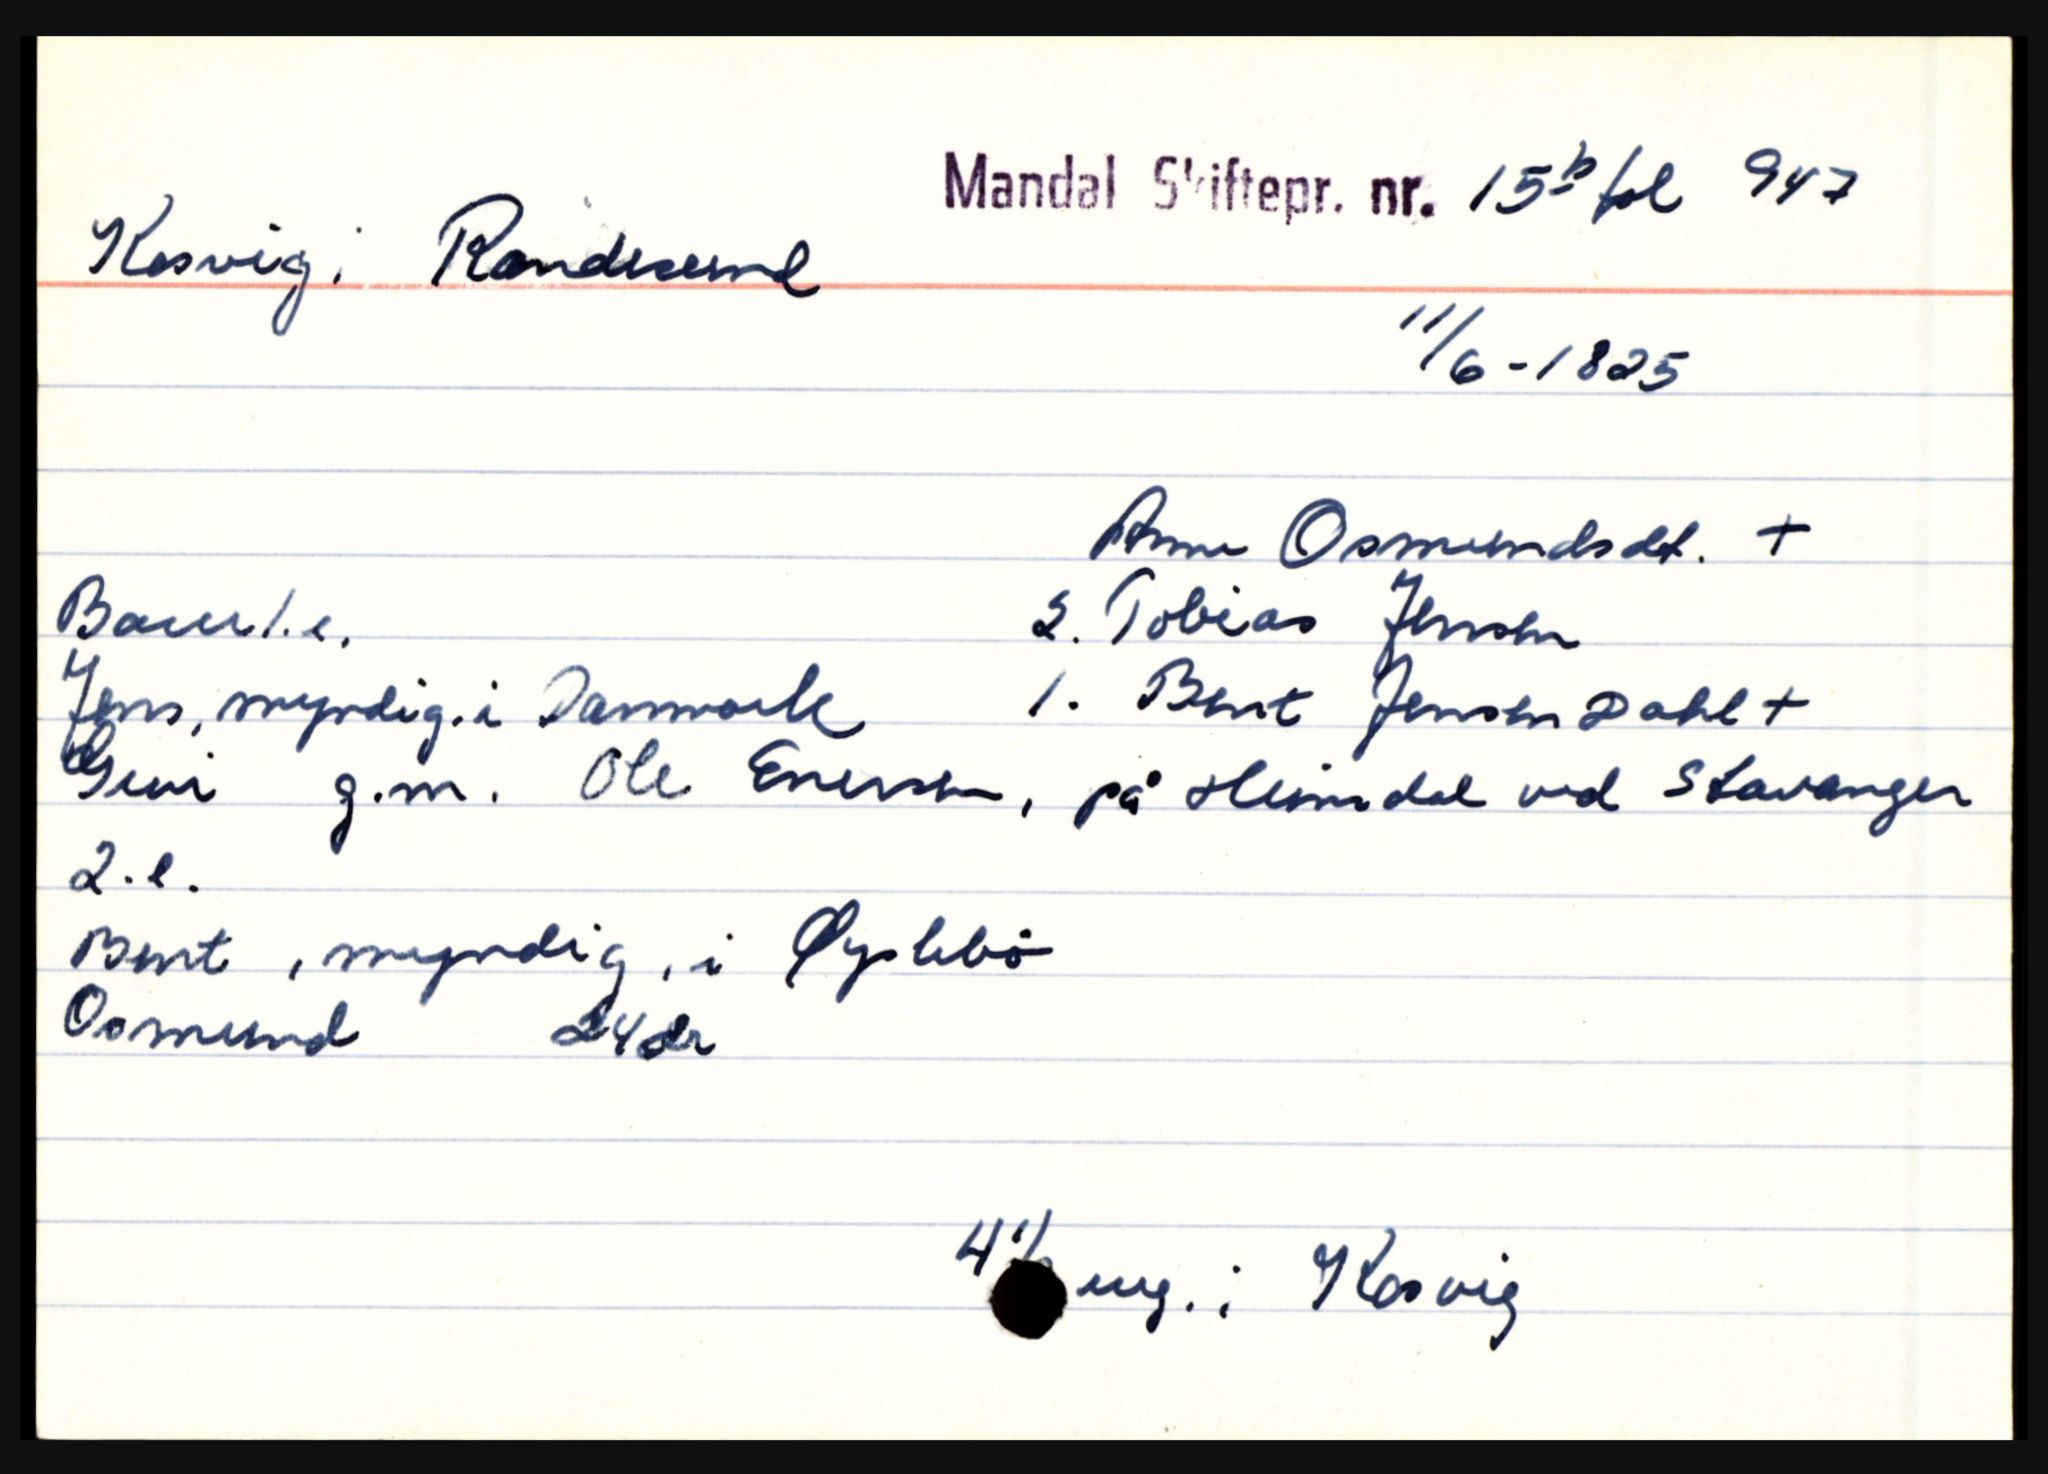 Mandal Skiftepr. nr. 15b fol 947
Kosvig i Randesund
11/6-1825
Anne Osmundsdt. +
Barn 1.e. 2. Tobias Jensen
Jens, myndig. i Danmark 1. Bent Jensen Dahl +
Guri g.m. Ole Enersen, på Heimdal ved Stavanger
2.e.
Bent, myndig, i Øyslebö
Osmund 24 år
4 1/ eng. i Kosvig